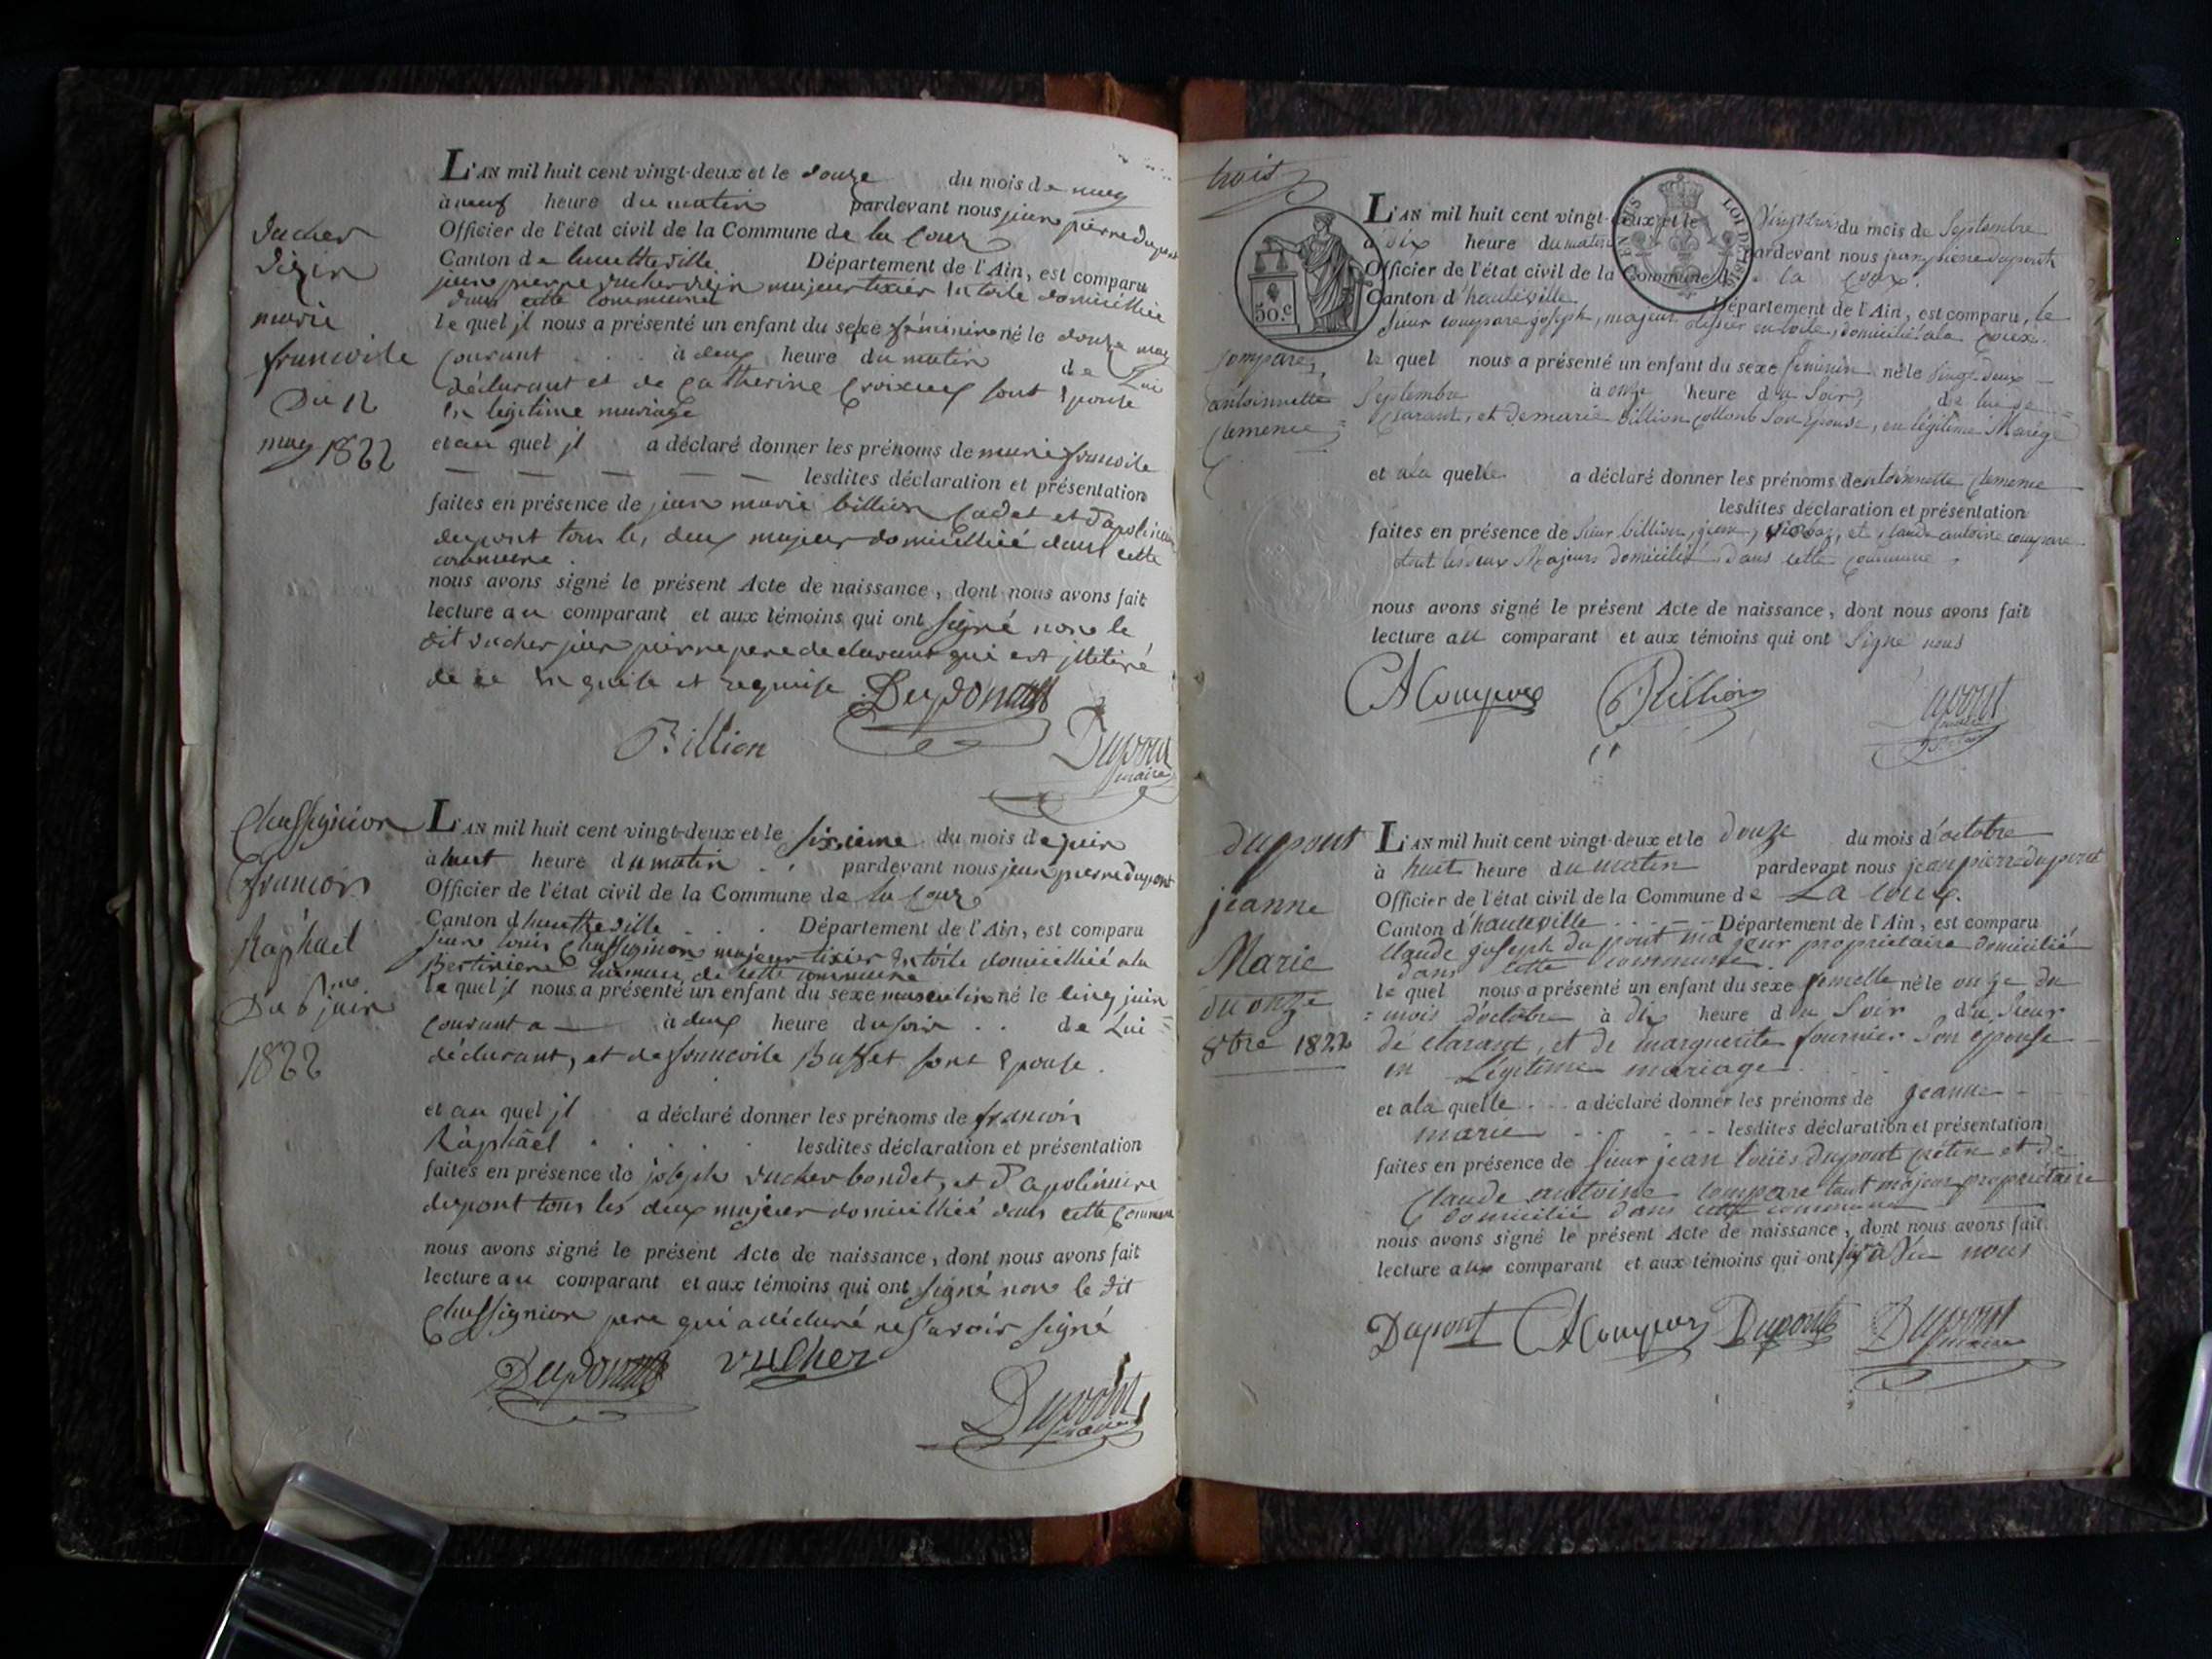 Vucher
Vizin
marie
francoise
Du 12
may 1822
L'AN mil huit cent vingt-deux et le douze du mois de may
à neuf heure du matin pardevant nous jean pierre dupont
Officier de l'état civil de la Commune de la Coux
Canton de hautheville Département de l'Ain, est comparu
jean pierre vucher vizin majeur tixier en toile domicillié
dans cette commune
le quel jl nous a présenté un enfant du sexe féminin né le douze may
courant à deux heure du matin de Lui
déclarant et de Catherine Croixuel sont Epouse
en légitime mariage
et au quel jl a déclaré donner les prénoms de marie francoise
lesdites déclaration et présentation
faites en présence de jean marie billion Cadet et d'apolinaire
dupont tous les deux majeur domicillié dans cette
commune.
nous avons signé le présent Acte de naissance, dont nous avons fait
lecture au comparant et aux témoins qui ont signé non le
dit vucher jean pierre pere déclarant qui est jlitiré
de ce enquise et requise. Dupont
Billion Dupont
maire
Chassignion
francois
Raphael
Du 6me juin
1822
L'AN mil huit cent vingt-deux et le sixieme du mois de juin
à huit heure du matin pardevant nous jean pierre dupont
Officier de l'état civil de la Commune de la Coux
Canton d'hautheville Département de l'Ain, est comparu
jean louis Chassignion majeur tixier en toile domicillié a la
Bertiniere hameau de cette commune
le quel jl nous a présenté un enfant du sexe masculin né le cinq juin
courant a à deux heure du soir de Lui =
déclarant, et de francoise Buffet sont Epouse.
et au quel jl a déclaré donner les prénoms de francois
Raphaël lesdites déclaration et présentation
faites en présence de joseph vucher bondet, et d'apolinaire
dupont tous les deux majeur domicillié dans cette Commune
nous avons signé le présent Acte de naissance, dont nous avons fait
lecture au comparant et aux témoins qui ont signé non le dit
Chassignion pere qui a déclaré ne savoir signé
Dupont vucher
Dupont
maire
trois
50.c
LOI DE 1816
Compare,
antoinnette
Clemence
L'AN mil huit cent vingt-deux et le vingt trois du mois de Septembre
à dix heure du matin pardevant nous jean pierre dupont
Officier de l'état civil de la Commune de la Coux.
Canton d'hauteville Département de l'Ain, est comparu, le
sieur compare joseph, majeur tissier en toile, domicilié a la Coux.
le quel nous a présenté un enfant du sexe feminin né le vingt deux
Septembre à onze heure du Soir, de lui de =
= clarant, et de marie billion collonb Son Epouse, en légitime Mariage
et a la quelle a déclaré donner les prénoms de antoinnette Clemence
lesdites déclaration et présentation
faites en présence de Sieur billion, jean, et, claude antoine compare
tout les deux Majeurs domicilié dans cette Commune
nous avons signé le présent Acte de naissance, dont nous avons fait
lecture au comparant et aux témoins qui ont Signé nous
CA Compare Billion Dupont
maire
dupont
jeanne
Marie
du onze
8bre 1822
L'AN mil huit cent vingt-deux et le douze du mois d'octobre
à huit heure du matin pardevant nous jean pierre dupont
Officier de l'état civil de la Commune de La Coux.
Canton d'hauteville Département de l'Ain, est comparu
Claude joseph dupont majeur propriétaire domicilié
dans cette commune.
le quel nous a présenté un enfant du sexe femelle né le onze du
= mois d'octobre à dix heure du Soir du Sieur
de clarant, et de marguerite fournier Son epouse
en Légitime mariage
et a la quelle a déclaré donner les prénoms de jeanne
marie lesdites déclaration et présentation
faites en présence de Sieur jean louis dupont crétin et de
Claude antoine compare tout majeur propriétaire
domicilié dans cette commune
nous avons signé le présent Acte de naissance, dont nous avons fait
lecture aux comparant et aux témoins qui ont nous
Dupont CA Compare Dupont Dupont
maire